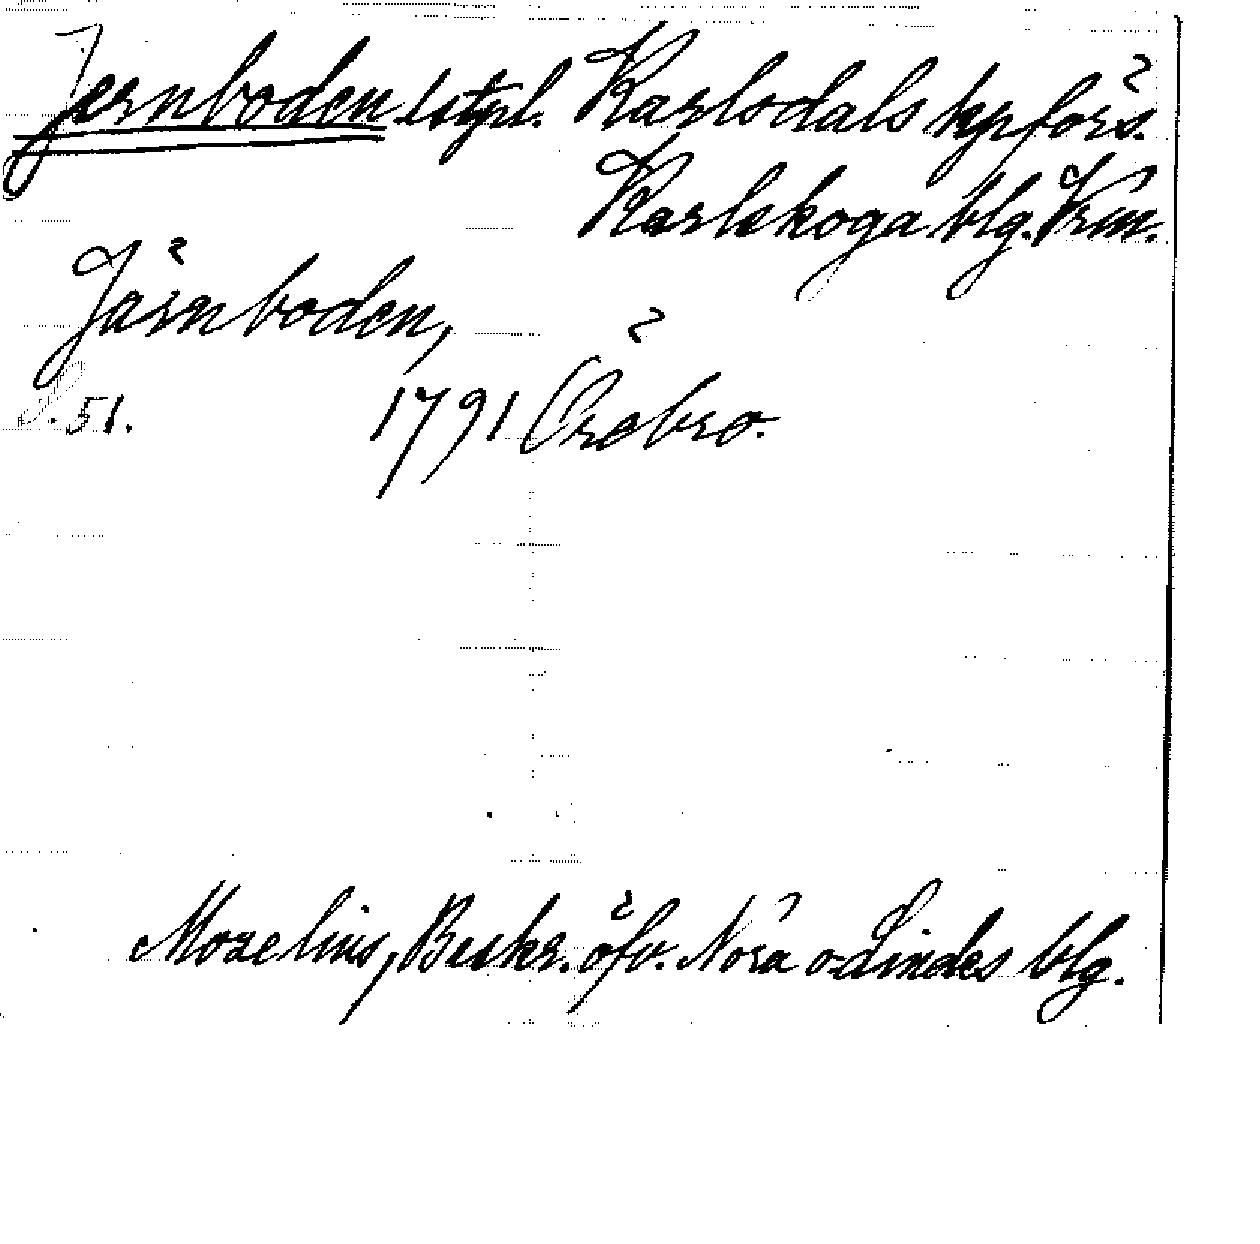 Jernboden lstpl. Karlsdals kpförs.
Karlskoga blg. Vrm.
Järnboden,
S. 51. 1791 Örebro.
Mozelius, Beskr. öfv. Nora o. Lindes blg.